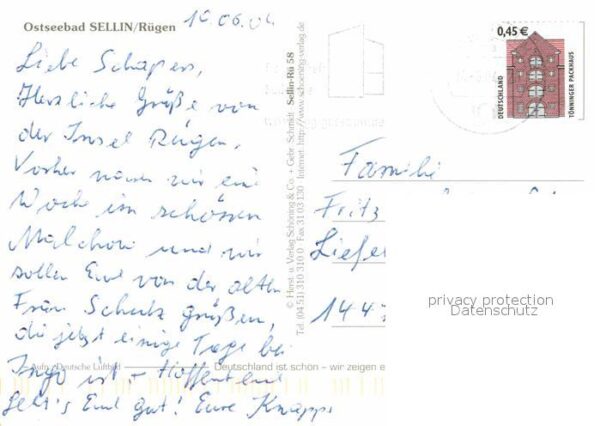 Ostseebad SELLIN/Rügen
10.06.04
Liebe Schäpers,
Herzliche Grüße von
der Insel Rügen.
Vorher waren wir eine
Woche im schönen
Malchow und wir
sollen Euch von der alten
Frau Schulz grüßen,
die jetzt einige Tage bei
Ingo ist. Hoffentlich
geht's Euch gut! Eure Knapps
Foto: Deutsche Luftbild
Deutschland ist schön – wir zeigen e
© Herst. u. Verlag Schöning & Co. + Gebr. Schmidt Sellin-Rü 58
Tel. (04 51) 310 310 0 Fax 31 03 130 Internet: http://www.schoening-verlag.de
0,45 €
DEUTSCHLAND
TÖNNINGER PACKHAUS
Familie
Fritz
Liefer
1447
privacy protection
Datenschutz